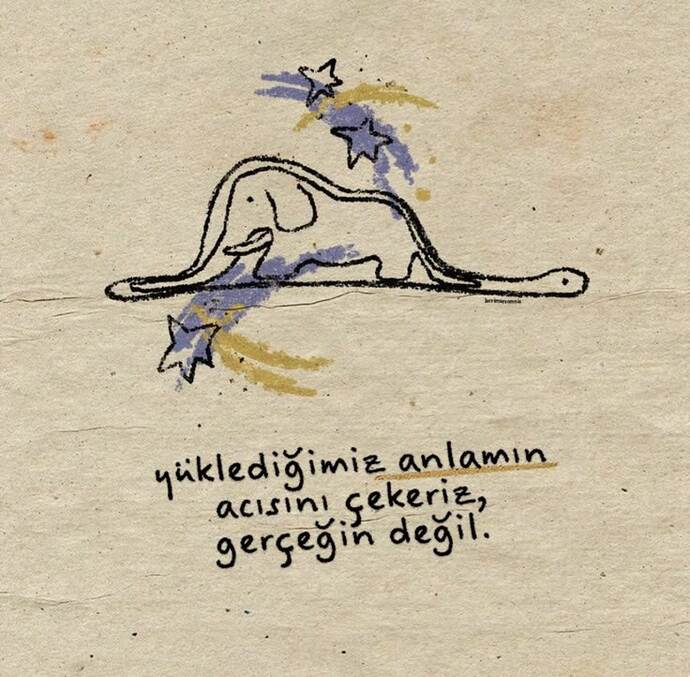 yüklediğimiz anlamın
acısını çekeriz,
gerçeğin değil.